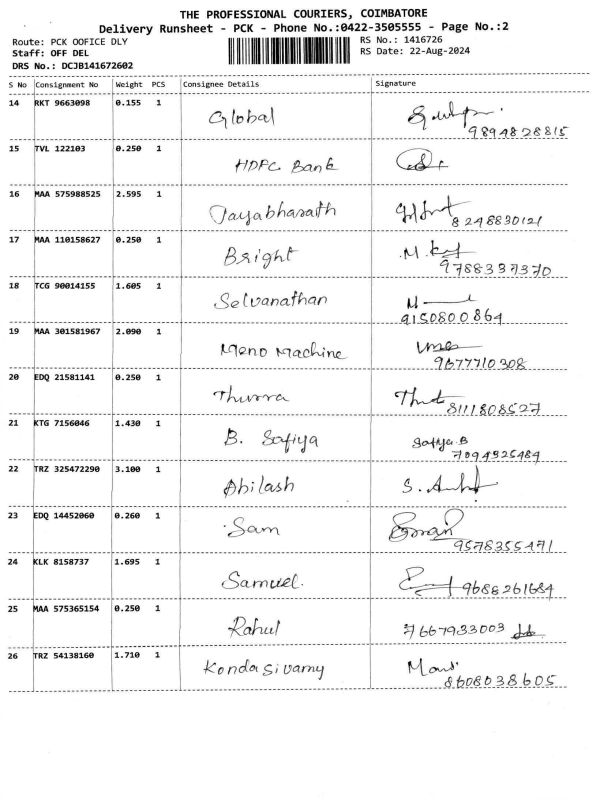 THE PROFESSIONAL COURIERS, COIMBATORE
Delivery Runsheet - PCK - Phone No.:0422-3505555 - Page No.:2
Route: PCK OOFICE DLY RS No.: 1416726
Staff: OFF DEL RS Date: 22-Aug-2024
DRS No.: DCJB141672602
S No Consignment No Weight PCS Consignee Details Signature
14 RKT 9663098 0.155 1 Global
9894828815
15 TVL 122103 0.250 1 HDFC Bank
16 MAA 575988525 2.595 1 Jayabharath
8248830121
17 MAA 110158627 0.250 1 Bright
9788337370
18 TCG 90014155 1.605 1 Selvanathan
9150800864
19 MAA 301581967 2.090 1 Meno Machine
9677710308
20 EDQ 21581141 0.250 1
8111808527
21 KTG 7156046 1.430 1 B. Safiya Safiya B
7094325484
22 TRZ 325472290 3.100 1 Abilash
23 EDQ 14452060 0.260 1 Sam
9578355471
24 KLK 8158737 1.695 1 Samuel. 9688261684
25 MAA 575365154 0.250 1 Rahul 7667933003
26 TRZ 54138160 1.710 1 Konda Sivamy
8608038605